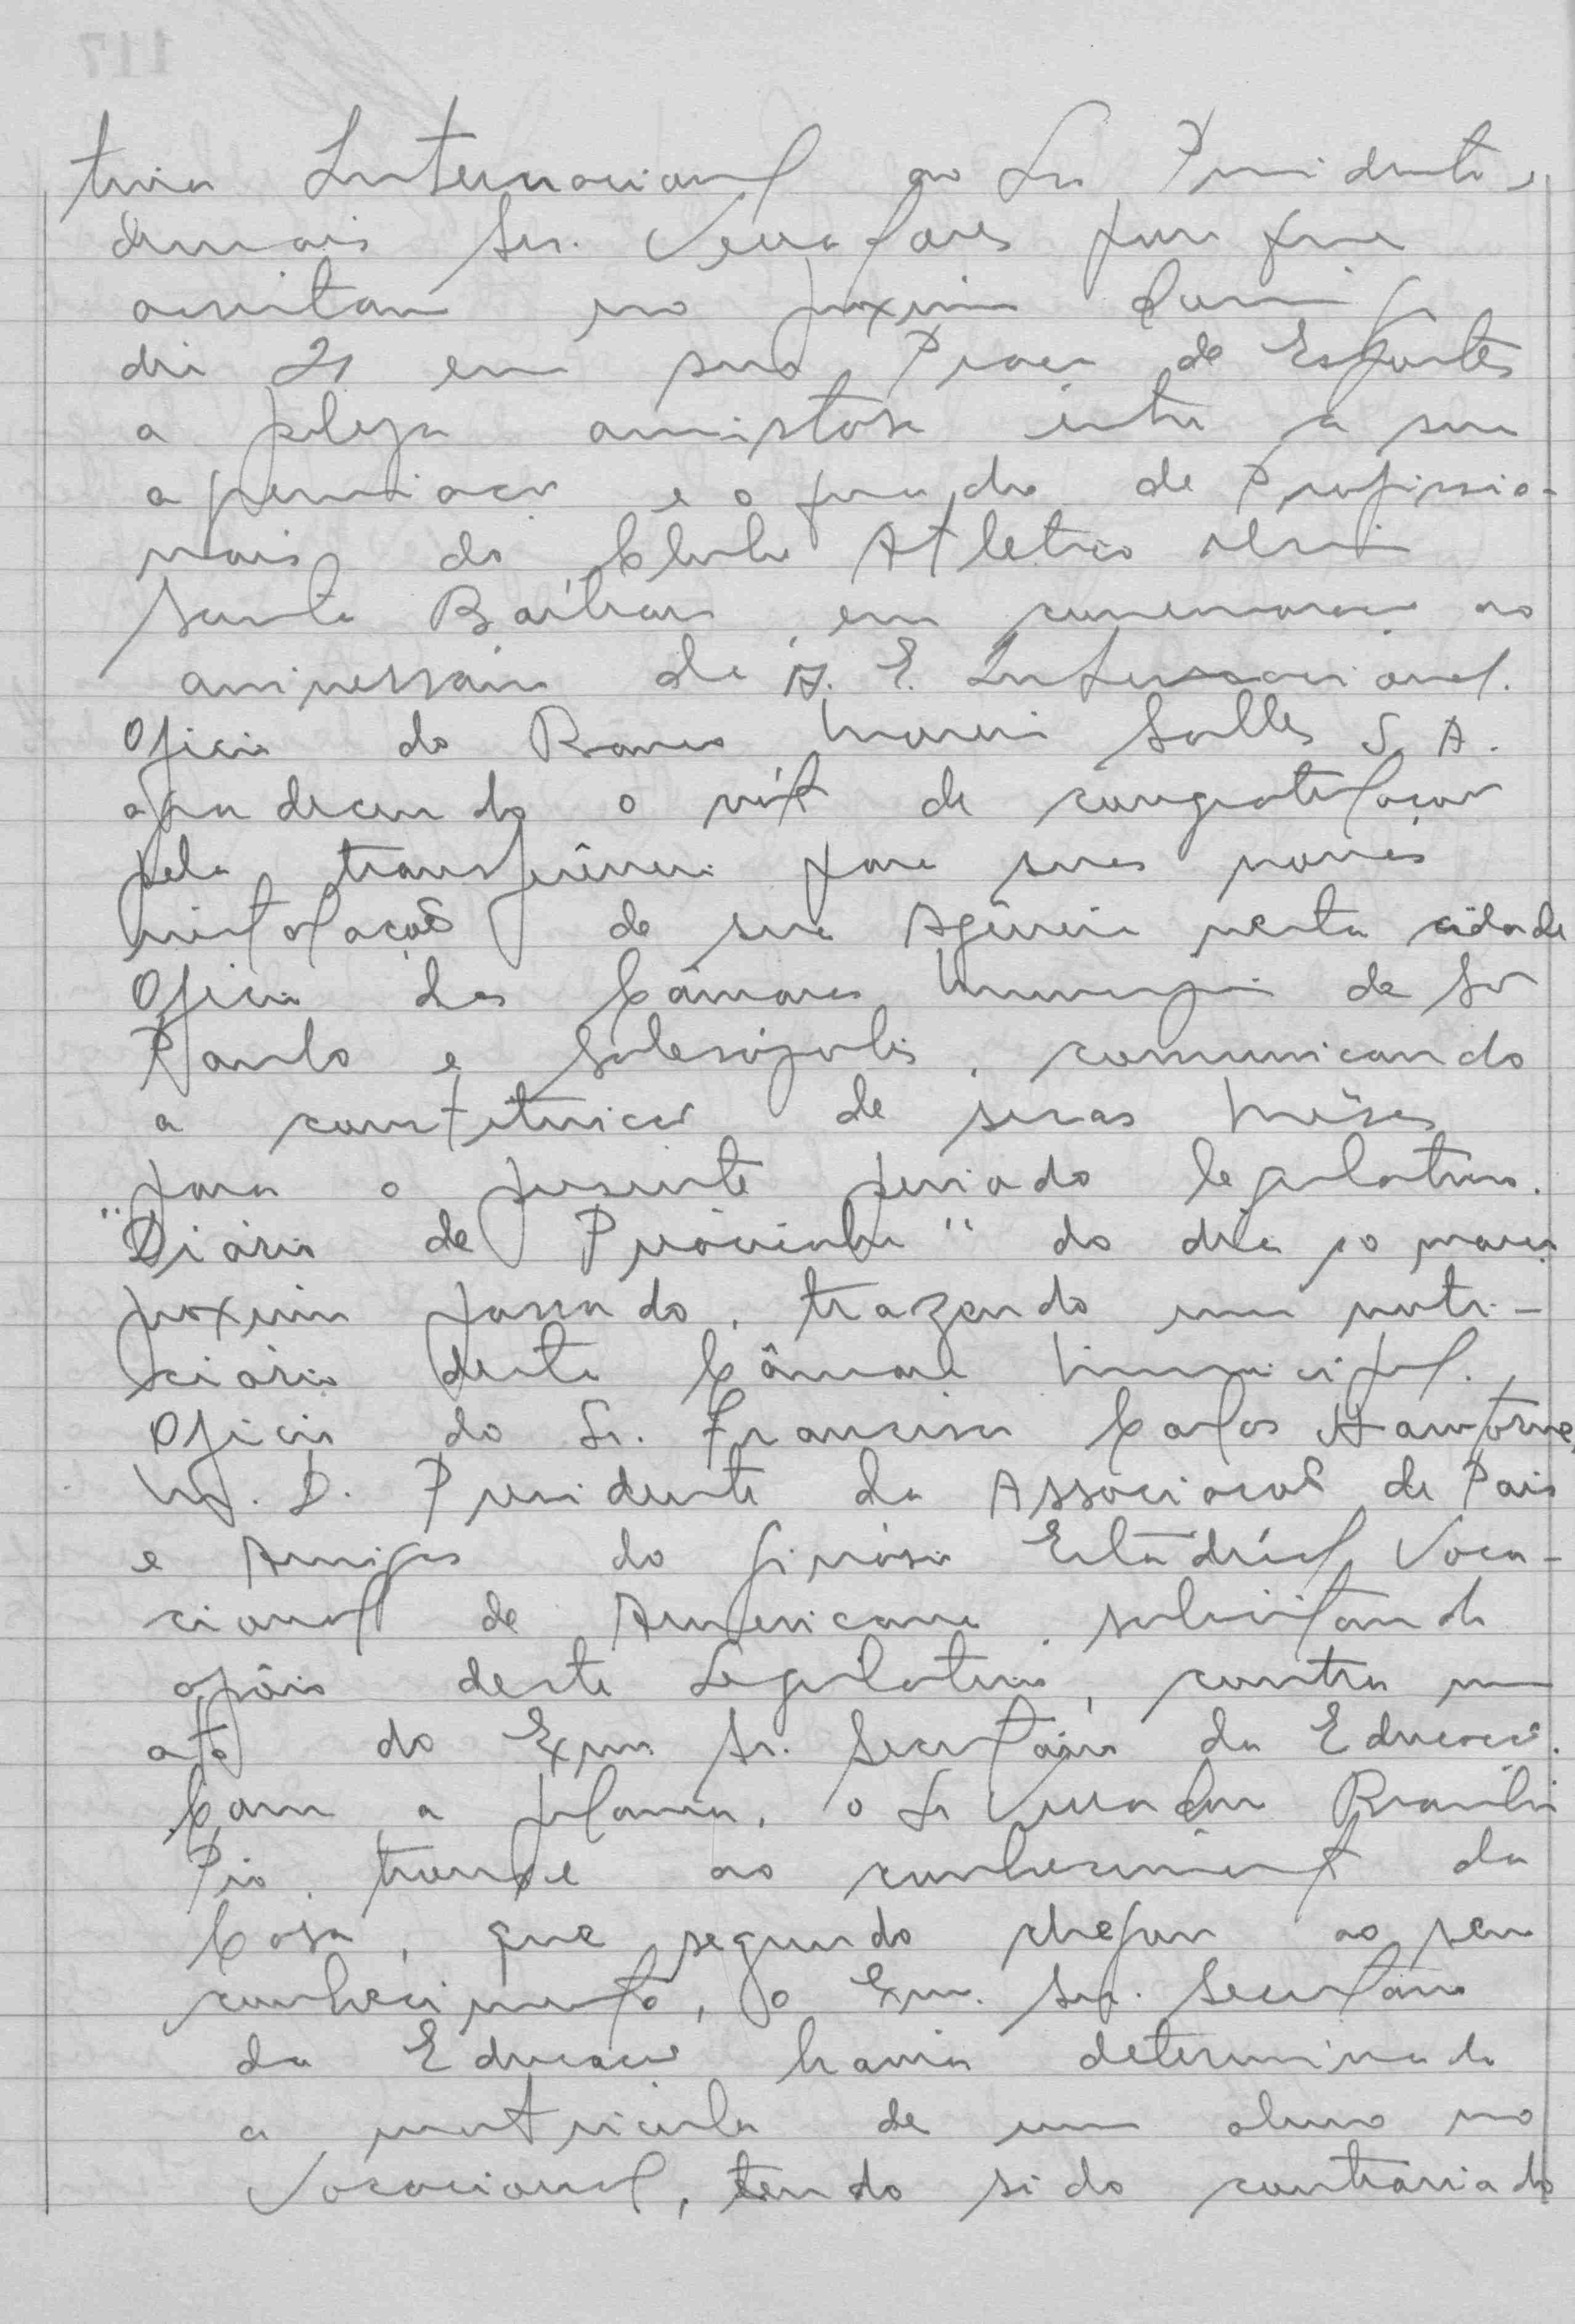 tiva Internacional ao Sr. Presidente e
demais Srs. Vereadores para que
assistam no proximo domingo
dia 21 em sua Praça de Esportes
a peleja amistosa entre a sua
agremiação e o quadro de Profissio-
nais do Clube Atletico União
Santa Bárbara, em comemoração ao
aniversário da A. E. Internacional.
Oficio do Banco Moreira Salles S. A.
agradecendo o voto de congratulações
pela transferência para suas novas
instalações de sua Agência nesta cidade
Oficio das Câmaras Municipais de São
Paulo e Salesópolis, comunicando
a constituição de suas Mêsas
para o presente periodo legislativo.
"Diário de Piracicaba" do dia 10 março
proximo passado, trazendo um noti-
ciário desta Câmara Municipal.
Oficio do Sr. Francisco Carlos
M. D. Presidente da Associação de Pais
e Amigos do Ginásio Estadual Voca-
cional de Americana, solicitando
apôio deste Legislativo, contra um
ato do Exmo Sr. Secretário da Educação.
Com a palavra, o Sr Vereador Brasilio
Pio, trouxe ao conhecimento da
Casa, que segundo chegou ao seu
conhecimento, o Exmo. Sr. Secretário
da Educação havia determinado
a matricula de um aluno no
Vocacional, tendo sido contrariado